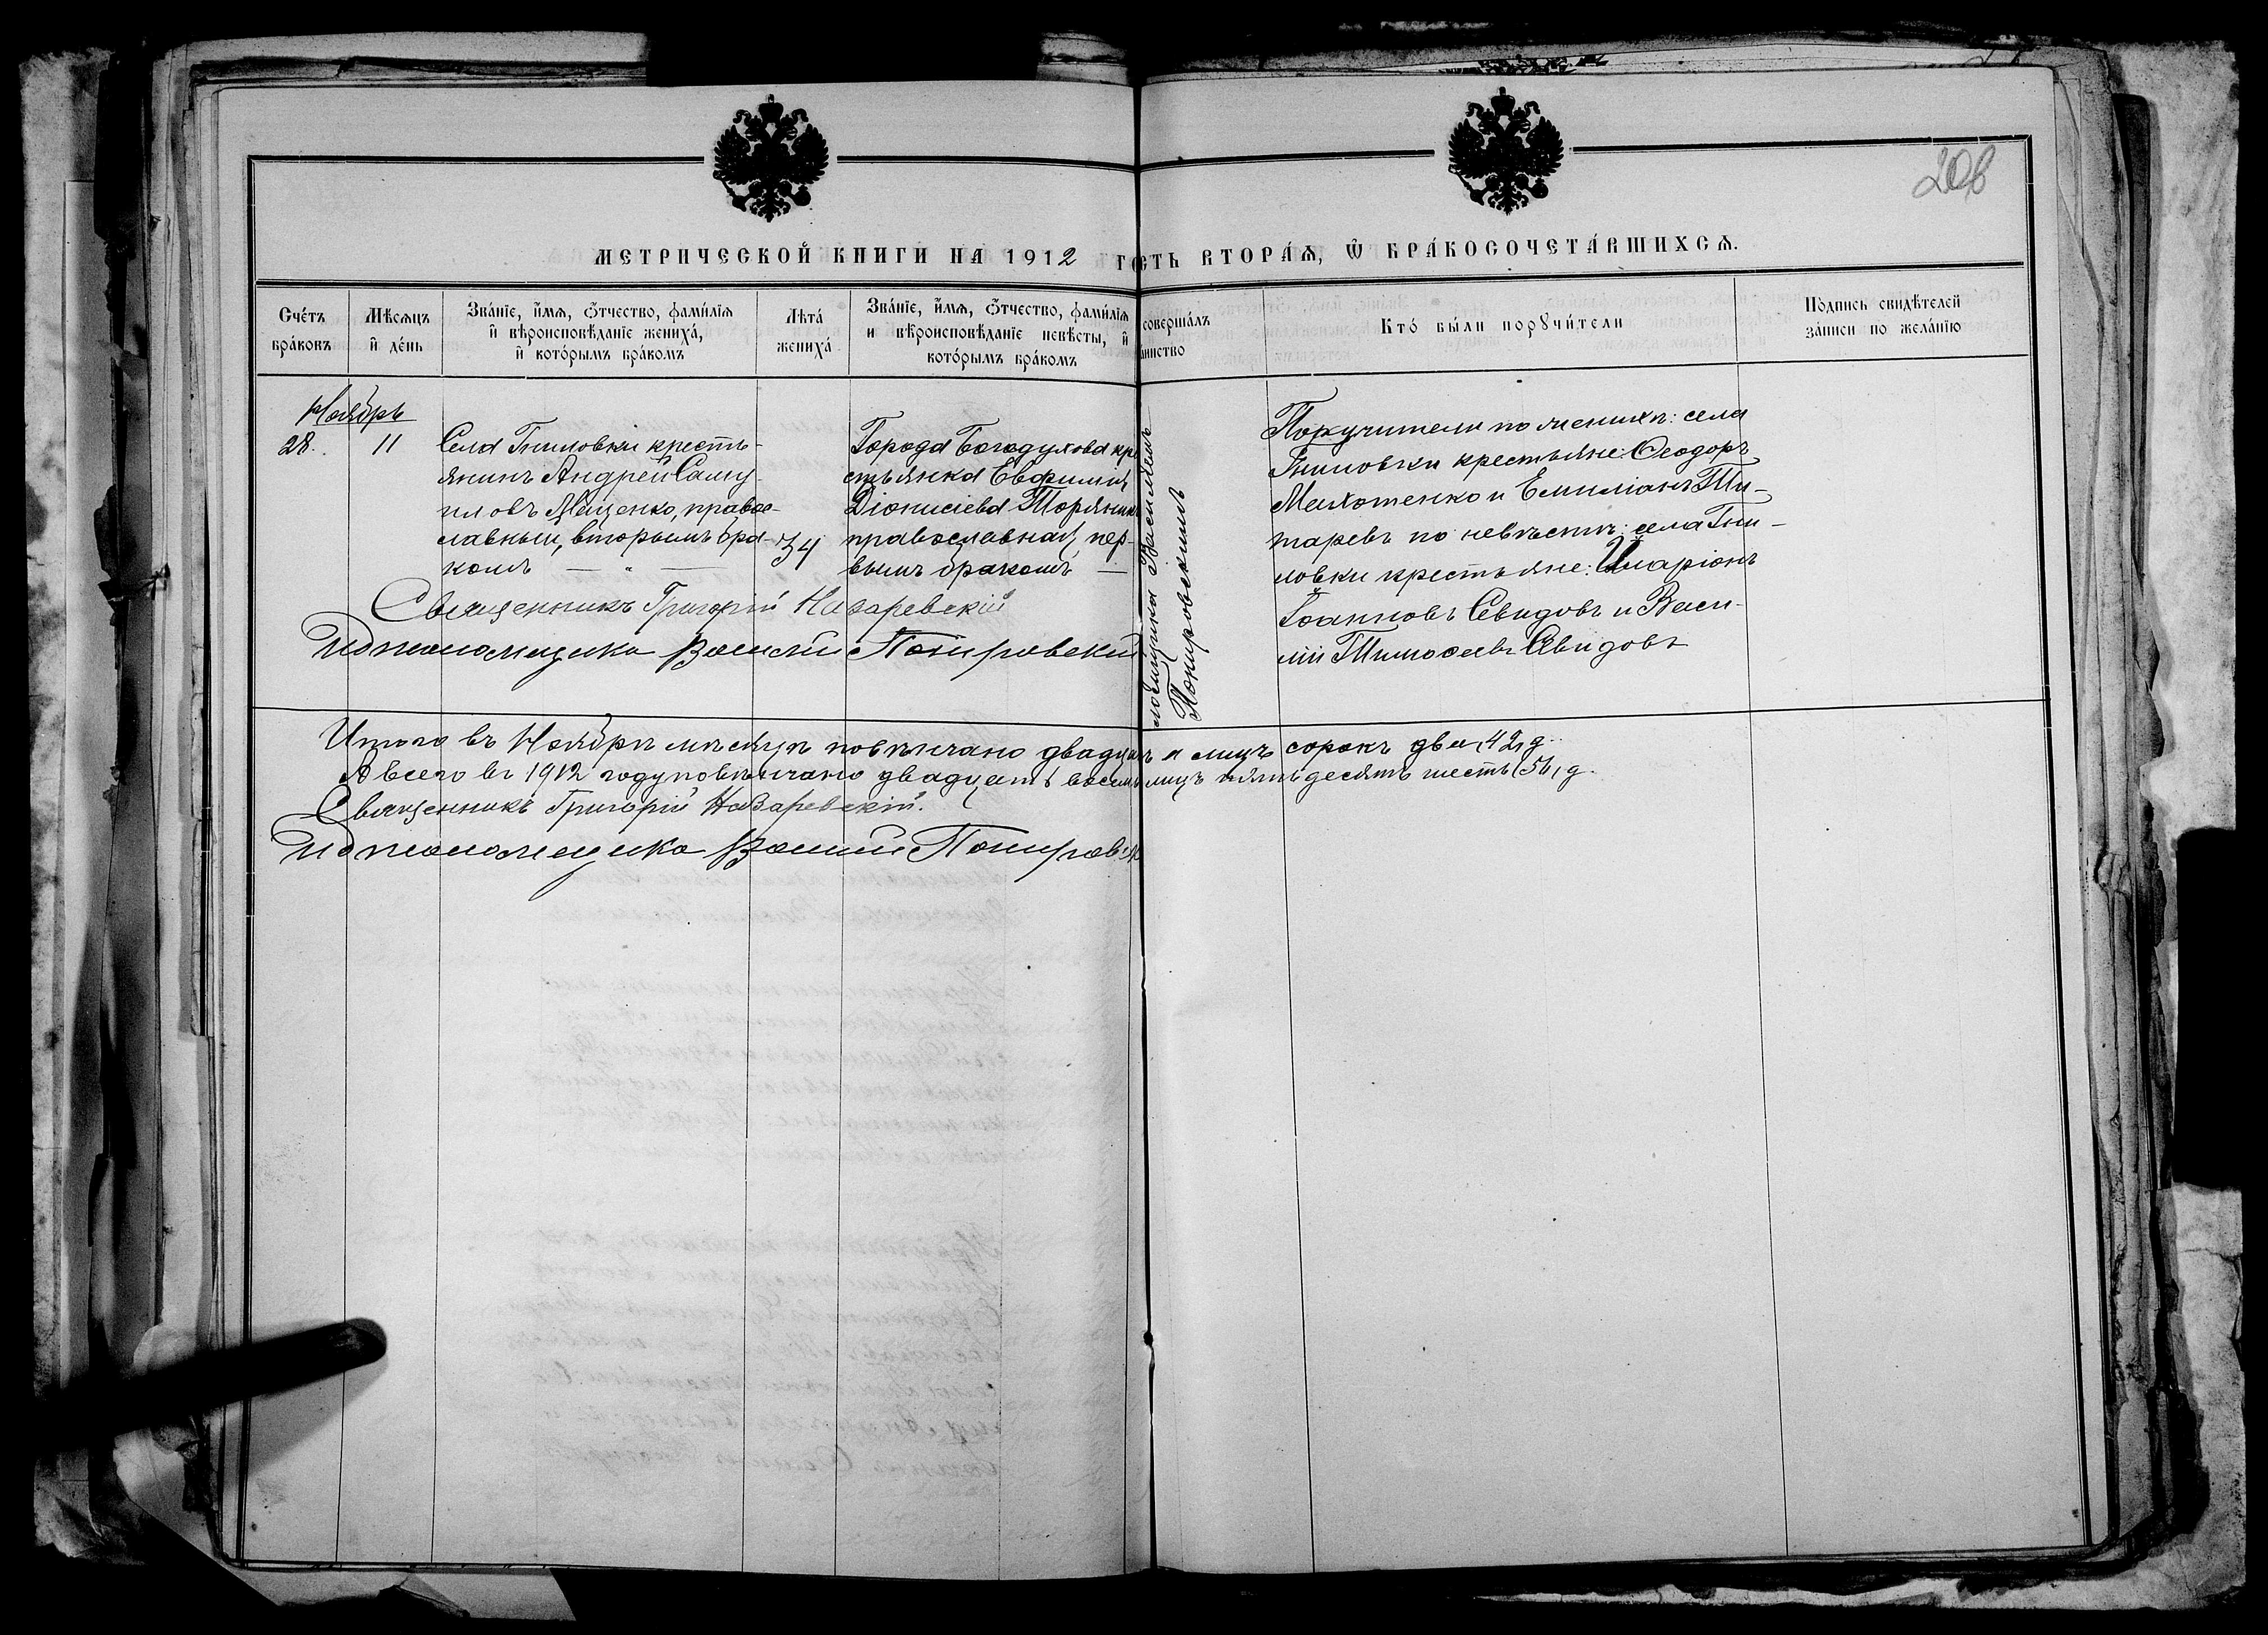 206
МЕТРИЧЕСКОЙ КНИГИ НА 1912 ГО
СТЬ ВТОРА́Ѧ, Ѿ БРА́КОСОЧЕТА́ВШИХСѦ.
Сче́тъ
бра́ковъ
Мѣсѧцъ
и де́нь
Зва́нїе, и́мѧ, ѻ́тчество, фами́лїѧ
и вѣроисповѣ́данїе жениха́,
и кото́рымъ бра́комъ
Лѣта́
жениха́
Зва́нїе, и́мѧ, ѻ́тчество, фами́лїѧ
и вѣроисповѣ́данїе невѣ́сты, и
кото́рымъ бра́комъ
соверша́лъ
аинство
Кто́ бы́ли порꙋчи́тели
По́дпись свидѣ́телей
за́писи по жела́нїю
Ноябрь
28. 11
Села Гниловки кресть-
янинъ Андрей Саму-
иловъ Мащенко, правос-
лавный, вторымъ бра-
комъ — " —
34
Города Богодухова кре
стьянка Евфимия
Діонисіева Торяник
православная, пер-
вымъ бракомъ —
ломщика Василіемъ
Покровскимъ
Поручители по женихѣ: села
Гниловки крестьяне: Ѳеодоръ
Махотенко и Емиліанъ Ти-
таревъ по невѣстѣ: села Гни-
ловки крестьяне: Иларіонъ
Іоанновъ Свидовъ и Васи-
лій Тимоѳеевъ Свидовъ
Священникъ Григорій Назаревскій
Псаломщика Василій Покровскій
Итого въ Ноябрѣ мѣсяцѣ повѣнчано двадца ъ и лицъ сорокъ два, 42, д.
А всего въ 1912 году повѣнчано двадцать восемь лицъ пятьдесятъ шесть (56, д.
Священникъ Григорій Назаревскій.
Псаломщика Василій Покровск